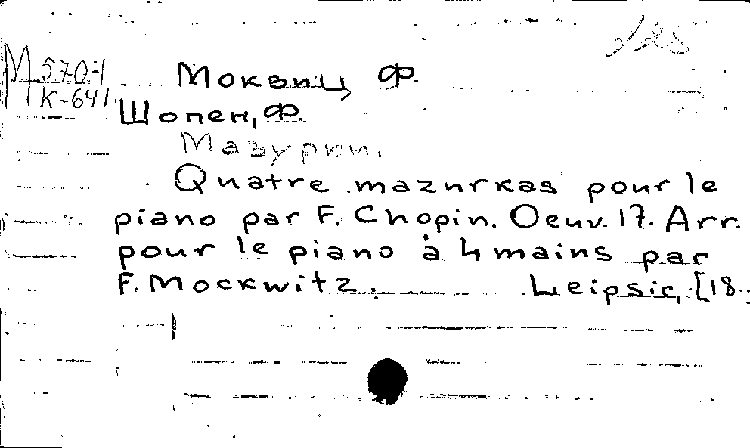 М 570-1
К-641
Моквиц Ф.
Шопен, Ф.
Мазурки.
Quatre mazurkas pour le
piano par F. Chopin. Oeuv. 17. Arr.
pour le piano à 4 mains par
F. Mockwitz. Leipsic, [18..